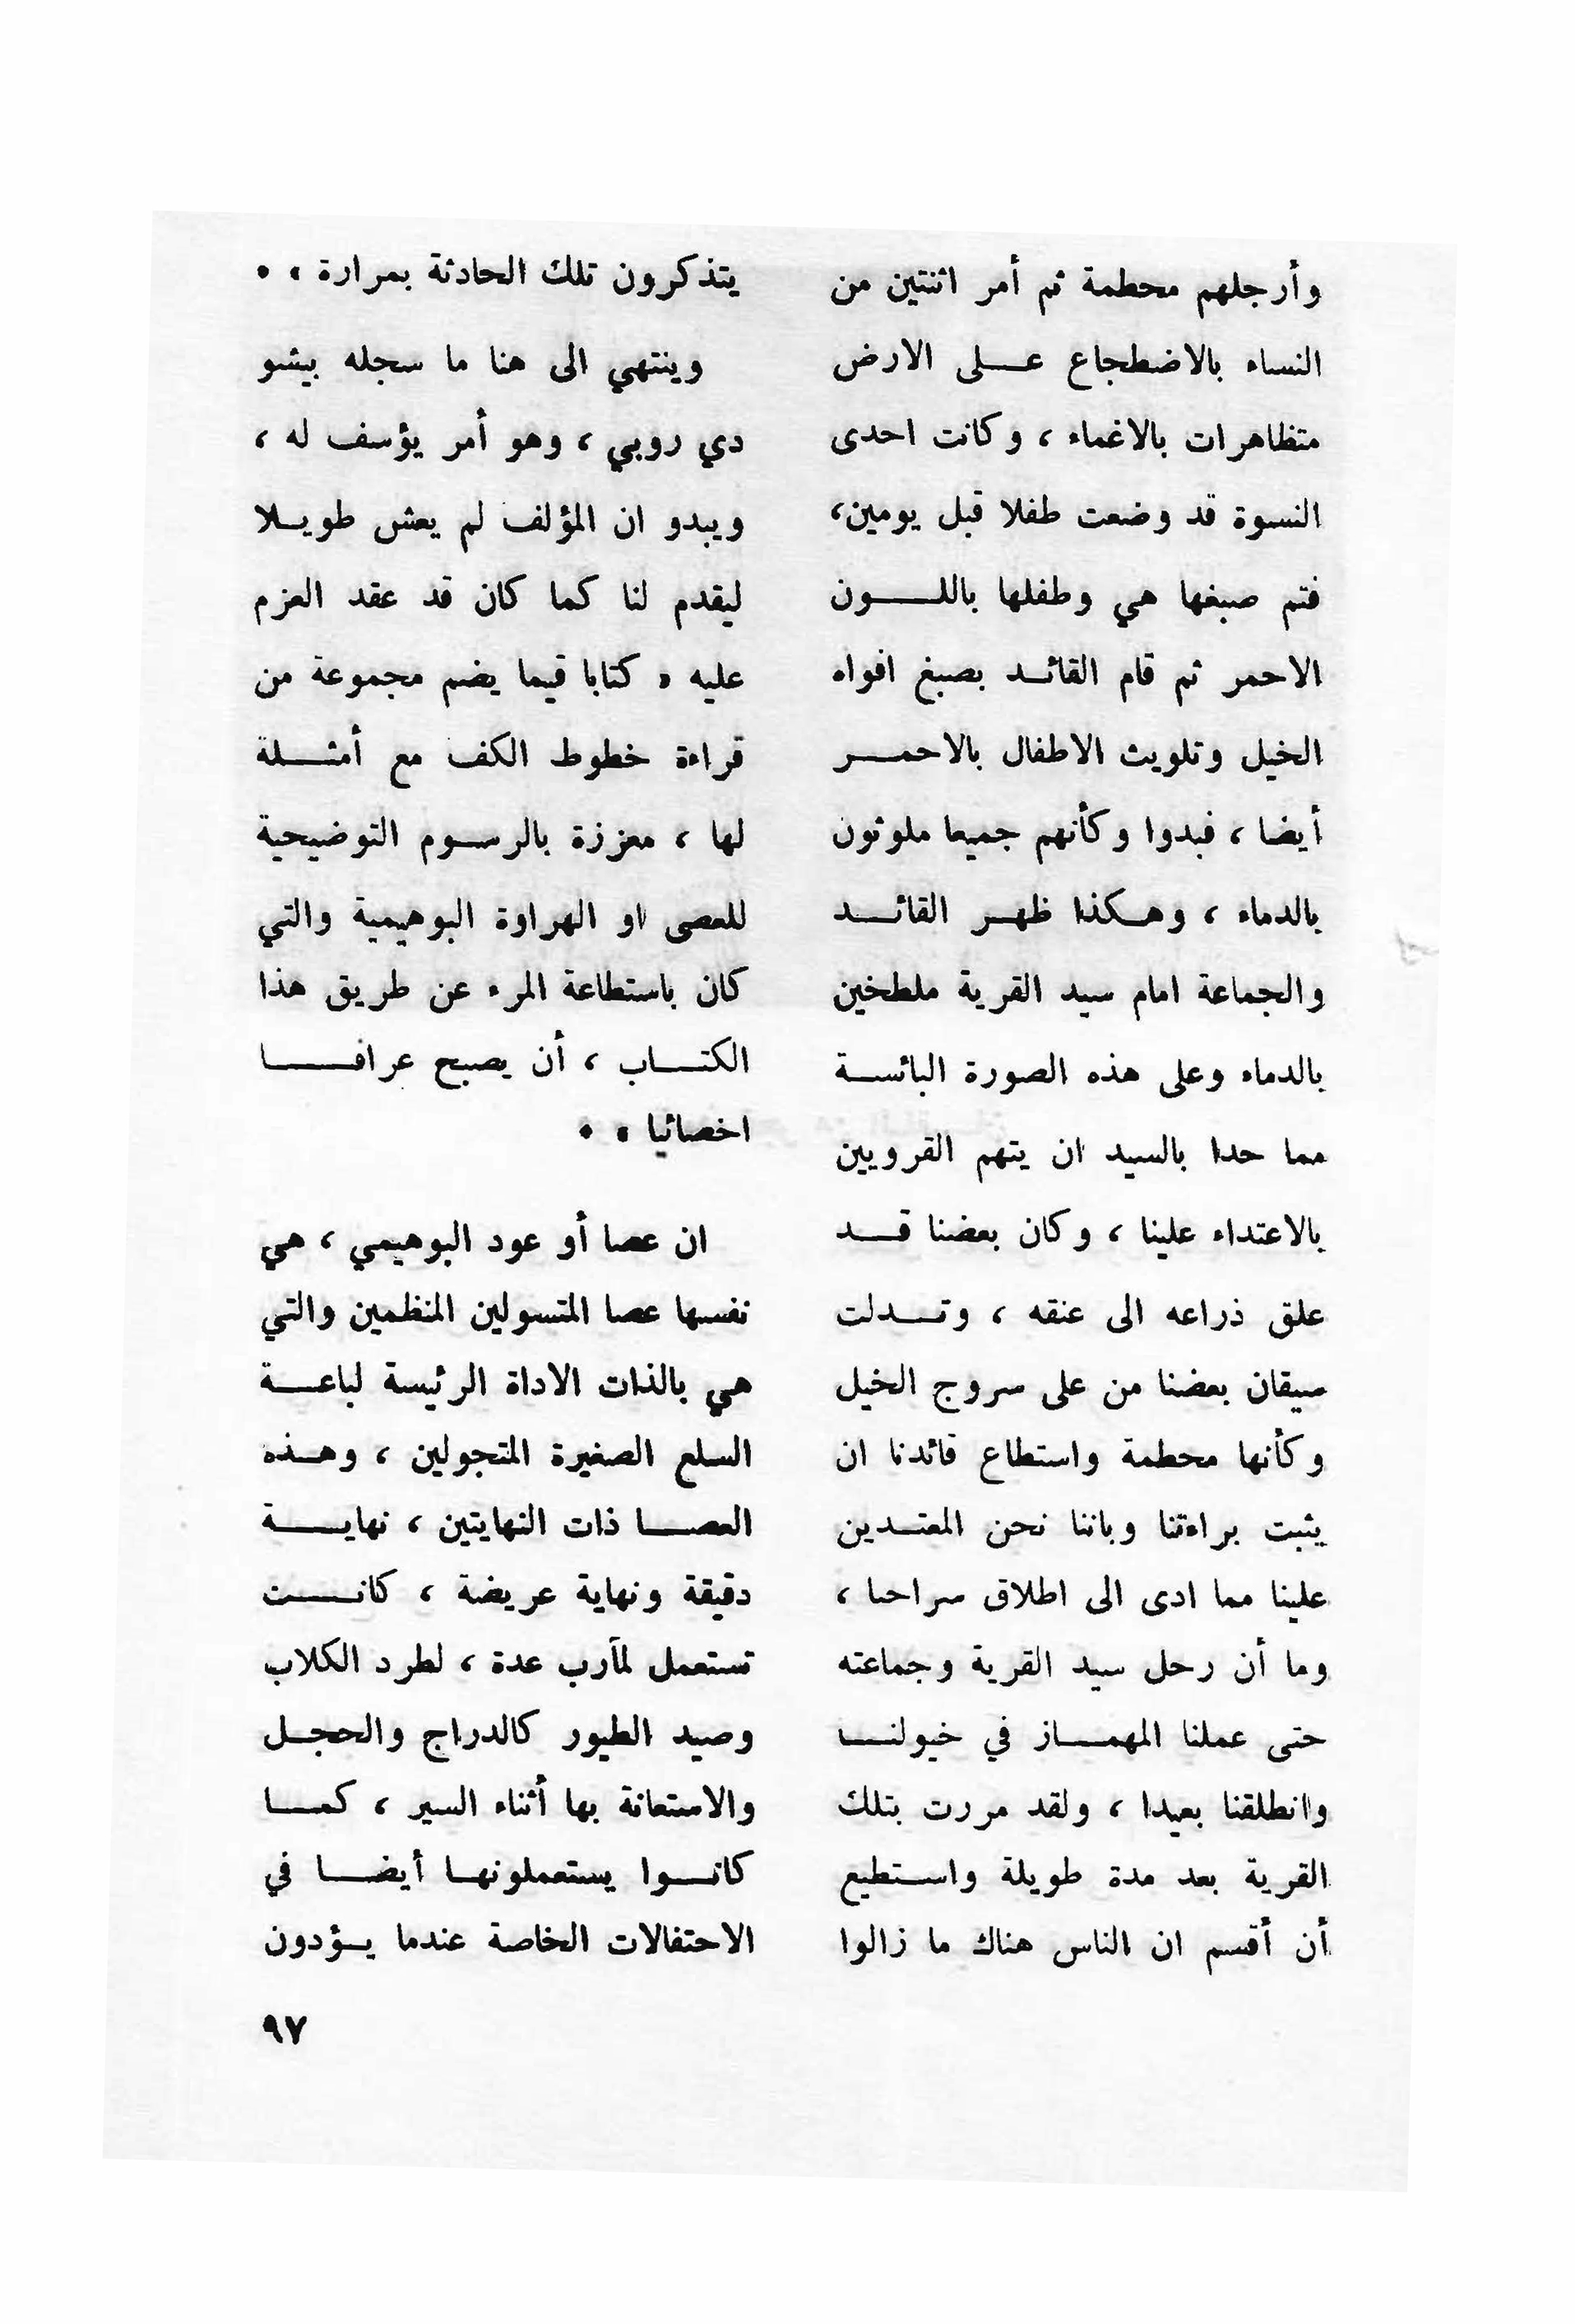 وأرجلهم محطمة ثم أمر اثنتين من
النساء بالاضطجاع على الارض
متظاهرات بالاغماء ، وكانت احدى
النسوة قد وضعت طفلا قبل يومين،
فتم صبغها هي وطفلها باللون
الاحمر ثم قام القائد بصبغ افواه
الخيل وتلويث الاطفال بالاحمر
أيضا ، فبدوا وكأنهم جميعا ملوثون
بالدماء ، وهكذا ظهر القائد
والجماعة امام سيد القرية ملطخين
بالدماء وعلى هذه الصورة البائسة
مما حدا بالسيد ان يتهم القرويين
بالاعتداء علينا ، وكان بعضنا قد
علق ذراعه الى عنقه ، وتدلت
سيقان بعضنا من على سروج الخيل
وكأنها محطمة واستطاع قائدنا ان
يثبت براءتنا وباننا نحن المعتدين
علينا مما ادى الى اطلاق سراحنا ،
وما أن رحل سيد القرية وجماعته
حتى عملنا المهماز في خيولنا
وانطلقنا بعيدا ، ولقد مررت بتلك
القرية بعد مدة طويلة واستطيع
أن أقسم ان الناس هناك ما زالوا
يتذكرون تلك الحادثة بمرارة » .
وينتهي الى هنا ما سجله بيشو
دي روبي ، وهو أمر يؤسف له ،
ويبدو ان المؤلف لم يعش طويلا
ليقدم لنا كما كان قد عقد العزم
عليه « كتابا قيما يضم مجموعة من
قراءة خطوط الكف مع أمثلة
لها ، معززة بالرسوم التوضيحية
للعصى او الهراوة البوهيمية والتي
كان باستطاعة المرء عن طريق هذا
الكتاب ، أن يصبح عرافا
اخصائيا » .
ان عصا أو عود البوهيمي ، هي
نفسها عصا المتسولين المنظمين والتي
هي بالذات الاداة الرئيسة لباعة
السلع الصغيرة المتجولين ، وهذه
العصا ذات النهايتين ، نهاية
دقيقة ونهاية عريضة ، كانت
تستعمل لمآرب عدة ، لطرد الكلاب
وصيد الطيور كالدراج والحجل
والاستعانة بها أثناء السير ، كما
كانوا يستعملونها أيضا في
الاحتفالات الخاصة عندما يؤدون
٩٧